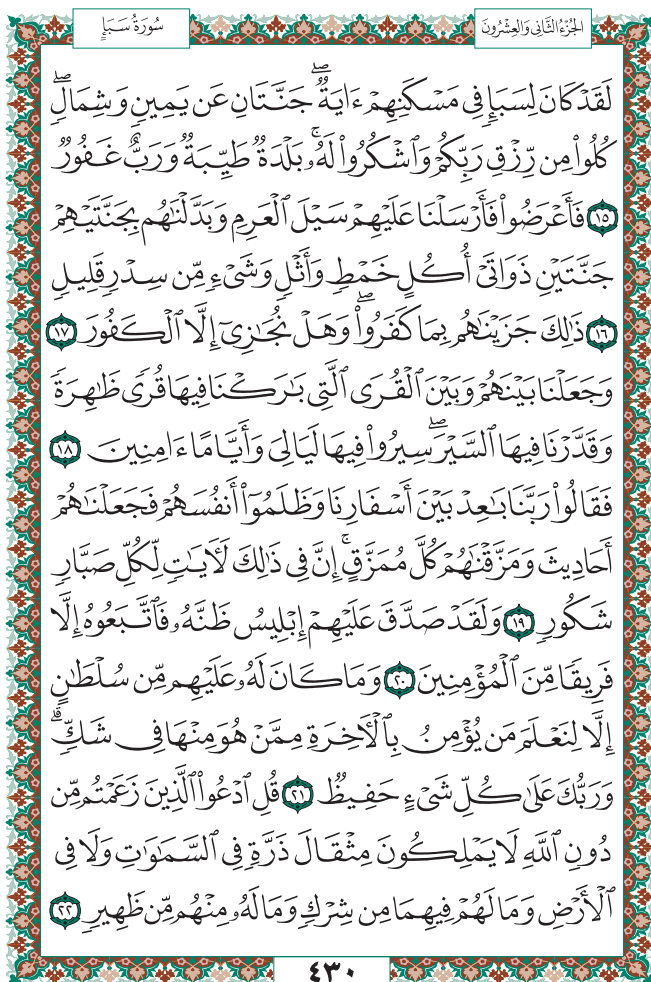 سُورَةُ سَبَإٍ
الجُزْءُ الثَّانِي وَالعِشْرُونَ
لَقَدْ كَانَ لِسَبَإٖ فِي مَسۡكَنِهِمۡ ءَايَةٞۖ جَنَّتَانِ عَن يَمِينٖ وَشِمَالٖۖ
كُلُواْ مِن رِّزۡقِ رَبِّكُمۡ وَٱشۡكُرُواْ لَهُۥۚ بَلۡدَةٞ طَيِّبَةٞ وَرَبٌّ غَفُورٞ
١٥ فَأَعۡرَضُواْ فَأَرۡسَلۡنَا عَلَيۡهِمۡ سَيۡلَ ٱلۡعَرِمِ وَبَدَّلۡنَٰهُم بِجَنَّتَيۡهِمۡ
جَنَّتَيۡنِ ذَوَاتَيۡ أُكُلٍ خَمۡطٖ وَأَثۡلٖ وَشَيۡءٖ مِّن سِدۡرٖ قَلِيلٖ
١٦ ذَٰلِكَ جَزَيۡنَٰهُم بِمَا كَفَرُواْۖ وَهَلۡ نُجَٰزِيٓ إِلَّا ٱلۡكَفُورَ ١٧
وَجَعَلۡنَا بَيۡنَهُمۡ وَبَيۡنَ ٱلۡقُرَى ٱلَّتِي بَٰرَكۡنَا فِيهَا قُرٗى ظَٰهِرَةٗ
وَقَدَّرۡنَا فِيهَا ٱلسَّيۡرَۖ سِيرُواْ فِيهَا لَيَالِيَ وَأَيَّامًا ءَامِنِينَ ١٨
فَقَالُواْ رَبَّنَا بَٰعِدۡ بَيۡنَ أَسۡفَارِنَا وَظَلَمُوٓاْ أَنفُسَهُمۡ فَجَعَلۡنَٰهُمۡ
أَحَادِيثَ وَمَزَّقۡنَٰهُمۡ كُلَّ مُمَزَّقٍۚ إِنَّ فِي ذَٰلِكَ لَأٓيَٰتٖ لِّكُلِّ صَبَّارٖ
شَكُورٖ ١٩ وَلَقَدۡ صَدَّقَ عَلَيۡهِمۡ إِبۡلِيسُ ظَنَّهُۥ فَٱتَّبَعُوهُ إِلَّا
فَرِيقٗا مِّنَ ٱلۡمُؤۡمِنِينَ ٢٠ وَمَا كَانَ لَهُۥ عَلَيۡهِم مِّن سُلۡطَٰنٍ
إِلَّا لِنَعۡلَمَ مَن يُؤۡمِنُ بِٱلۡأٓخِرَةِ مِمَّنۡ هُوَ مِنۡهَا فِي شَكّٖۗ
وَرَبُّكَ عَلَىٰ كُلِّ شَيۡءٍ حَفِيظٞ ٢١ قُلِ ٱدۡعُواْ ٱلَّذِينَ زَعَمۡتُم مِّن
دُونِ ٱللَّهِ لَا يَمۡلِكُونَ مِثۡقَالَ ذَرَّةٖ فِي ٱلسَّمَٰوَٰتِ وَلَا فِي
ٱلۡأَرۡضِ وَمَا لَهُمۡ فِيهِمَا مِن شِرۡكٖ وَمَا لَهُۥ مِنۡهُم مِّن ظَهِيرٖ ٢٢
٤٣٠